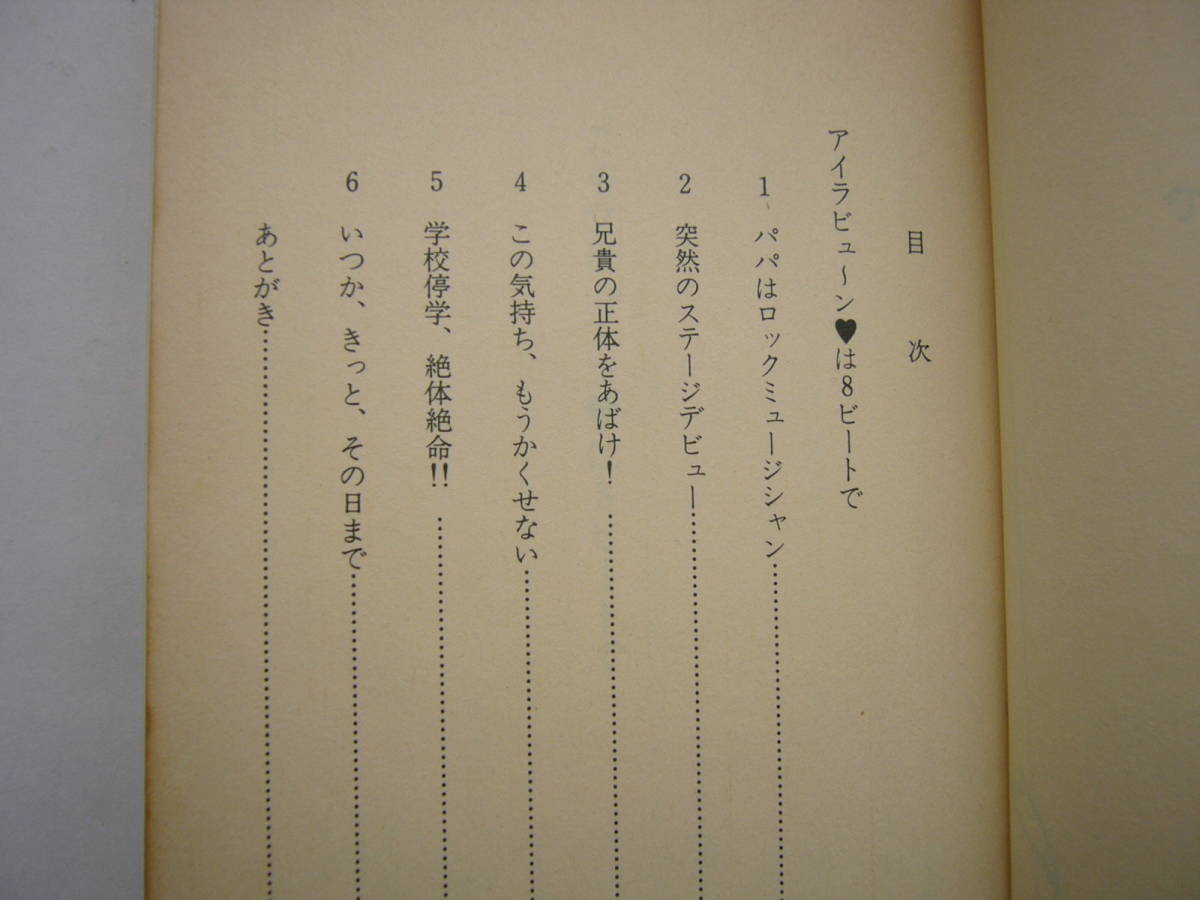 目次
アイラビュ～ン♥は8ビートで
1 パパはロックミュージシャン……………………
2 突然のステージデビュー……………………
3 兄貴の正体をあばけ！……………………
4 この気持ち、もうかくせない……………………
5 学校停学、絶体絶命!!……………………
6 いつか、きっと、その日まで……………………
あとがき……………………